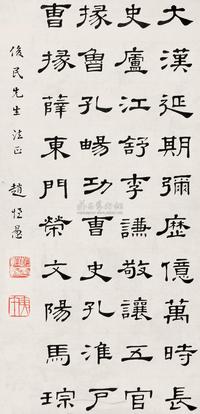 大漢延期彌歷億萬時長
史廬江舒李謙敬讓五官
掾魯孔暢功曹史孔淮戶
曹掾薛東門榮文陽馬琮
俊民先生法正 趙恆惖